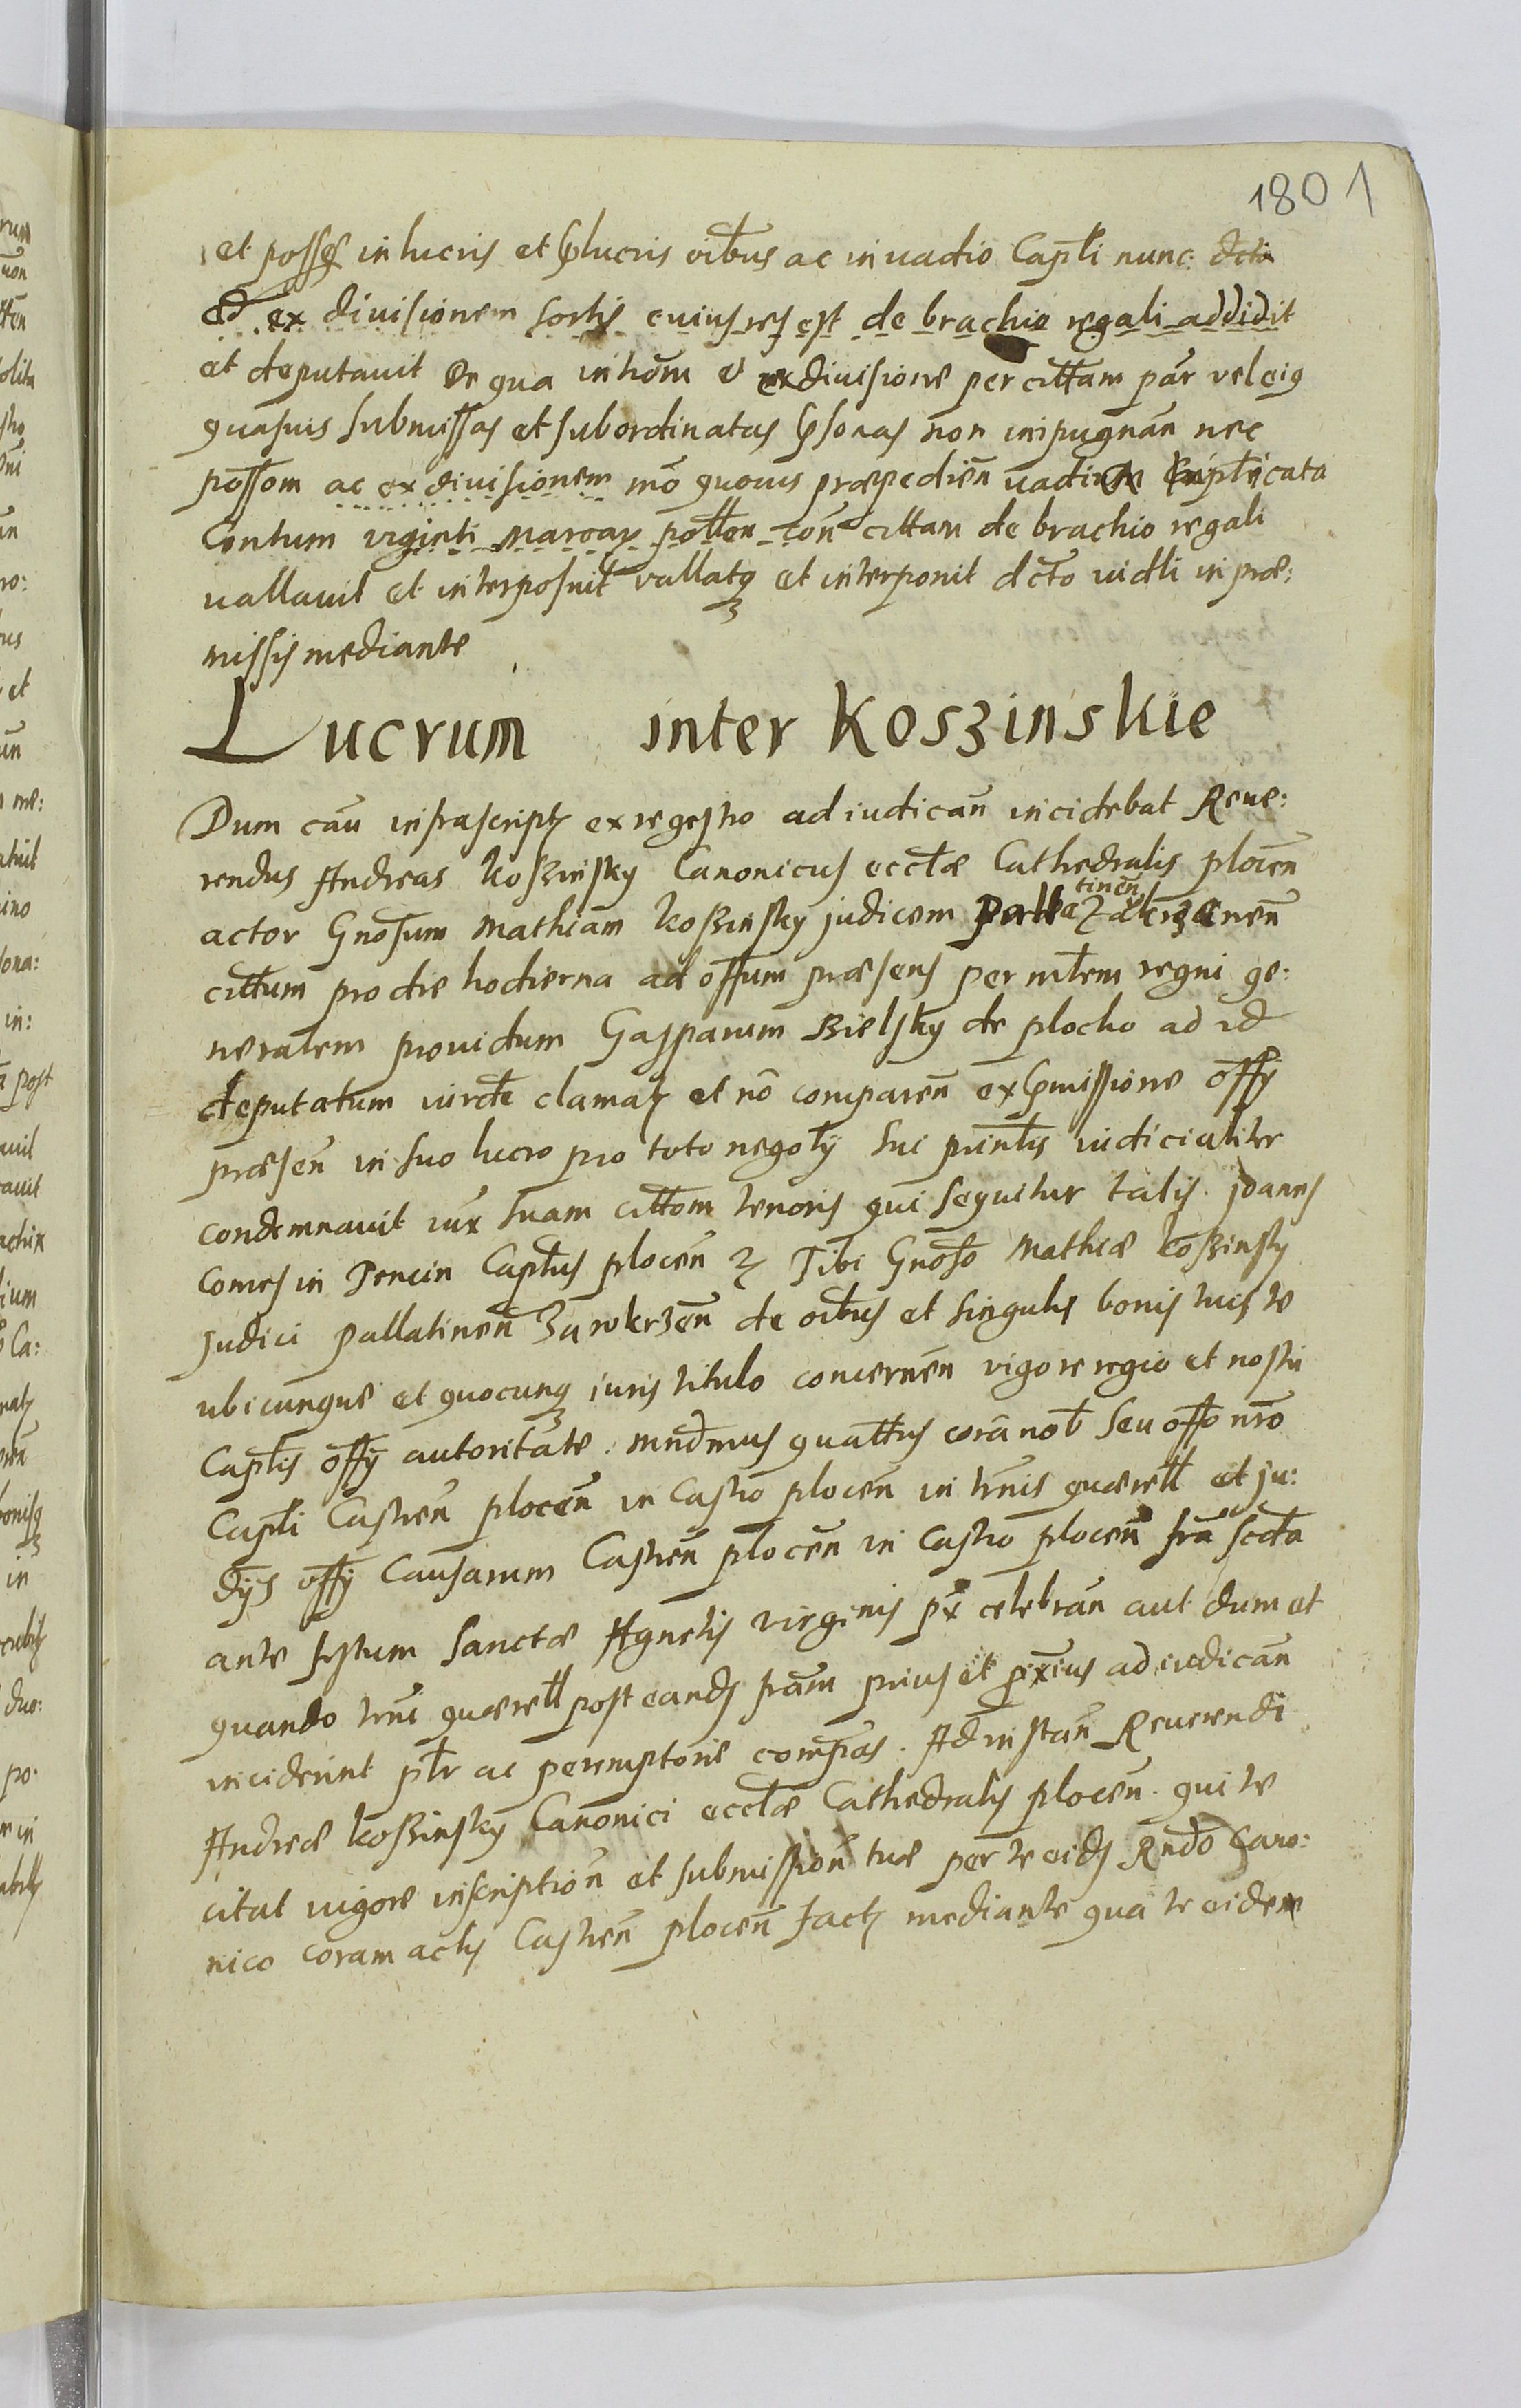 1801
et posses in lucris et lucris oibus ac in vadio Capti nunc dcto
Et ex divisionem sortis cuius res est de brachio regali addidit
et deputavit De qua exdivisione per cittam par vel eiq
quasvis submissas et subordinatas psonas non impugnan nec
possom ac exdivisionem mo quovis præpedien vadium triplicata
Centum viginti marcar pollon con cittam de brachio regali
vallavit et interposuit vallatq et interponit dcto vidli in præ:
missis mediante
Lucrum inter Koszinskie
Dum cau infrascript ex regestro adiudican incidebat Reve:
rendus Andreas Koszinsky Canonicus ecctæ Cathedralis plocen
actor Gnosum Mathiam Koszinsky judicem Palla tinen Zawkrzenen
cittum pro die hodierna ad offum præsens per mtem regni ge:
neralem providum Gasparum Bielsky de plocko ad id
deputatum clamat et no comparen ex pmissione offy
præsen in suo lucro pro toto negoty sui printis iudicialiter
condemnavit iux suam cittom tenoris qui sequitur talis. Joannes
Comes in Tencin Captus plocen Tibi Gnoso Mathiæ Koszinsky
Judici Pallatinen Zawkrzen de oibus et singulis bonis tuis te
ubicunque et quocunq iuris titulo concernen vigore regio et nostri
Captis offy autoritate. mndmus quattus cora nob seu offo nro
Capti Castren plocen in Castro plocen in trnis quærell et ju:
dys offy Causarum Castren plocen in Castro plocen fra scda
ante festum Sanctæ Agnetis virginis px celebran aut dum et
quando trni quærell post eands fram prius et pxius adiudican
inciderint ptr ac peremptorie compras. Ad instan Reverendi
Andreæ Koszinsky Canonici ecctæ Cathedralis plocen. qui te
citat vigore inscription et submission tuæ per te eids Rndo Cano:
nico coram actis Castren plocen fact mediante qua te eidem